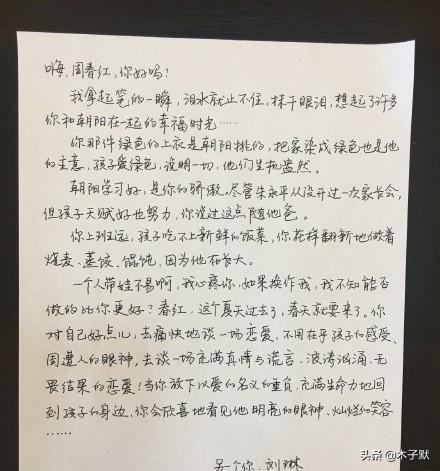 嗨,周春红,你好吗?
我拿起笔的一瞬,泪水就止不住,抹干眼泪,想起了许多
你和朝阳在一起的幸福时光……
你那件绿色的上衣是朝阳挑的,把家染成绿色也是他
的主意,孩子爱绿色,说明一切,他们生机盎然。
朝阳学习好,是你的骄傲。尽管朱永平从没开过一次家长会,
但孩子天赋好也努力,你说过这点随他爸。
你上班远,孩子吃不上新鲜的饭菜,你花样翻新地做着
烧麦、蒸饺、馄饨,因为他在长大。
一个人带娃不易啊,我心疼你,如果换作我,我不知能否
做的比你更好?春红,这个夏天过去了,春天就要来了。你
对自己好点儿,去痛快地谈一场恋爱,不用在乎孩子的感受、
周遭人的眼神,去谈一场充满真情与谎言、波涛汹涌、无
畏结果的恋爱!当你放下以爱的名义的重负,充满生命力地回
到孩子的身边,你会欣喜地看见他明亮的眼神、灿烂的笑容
……
另个你:刘琳
头条@木子默